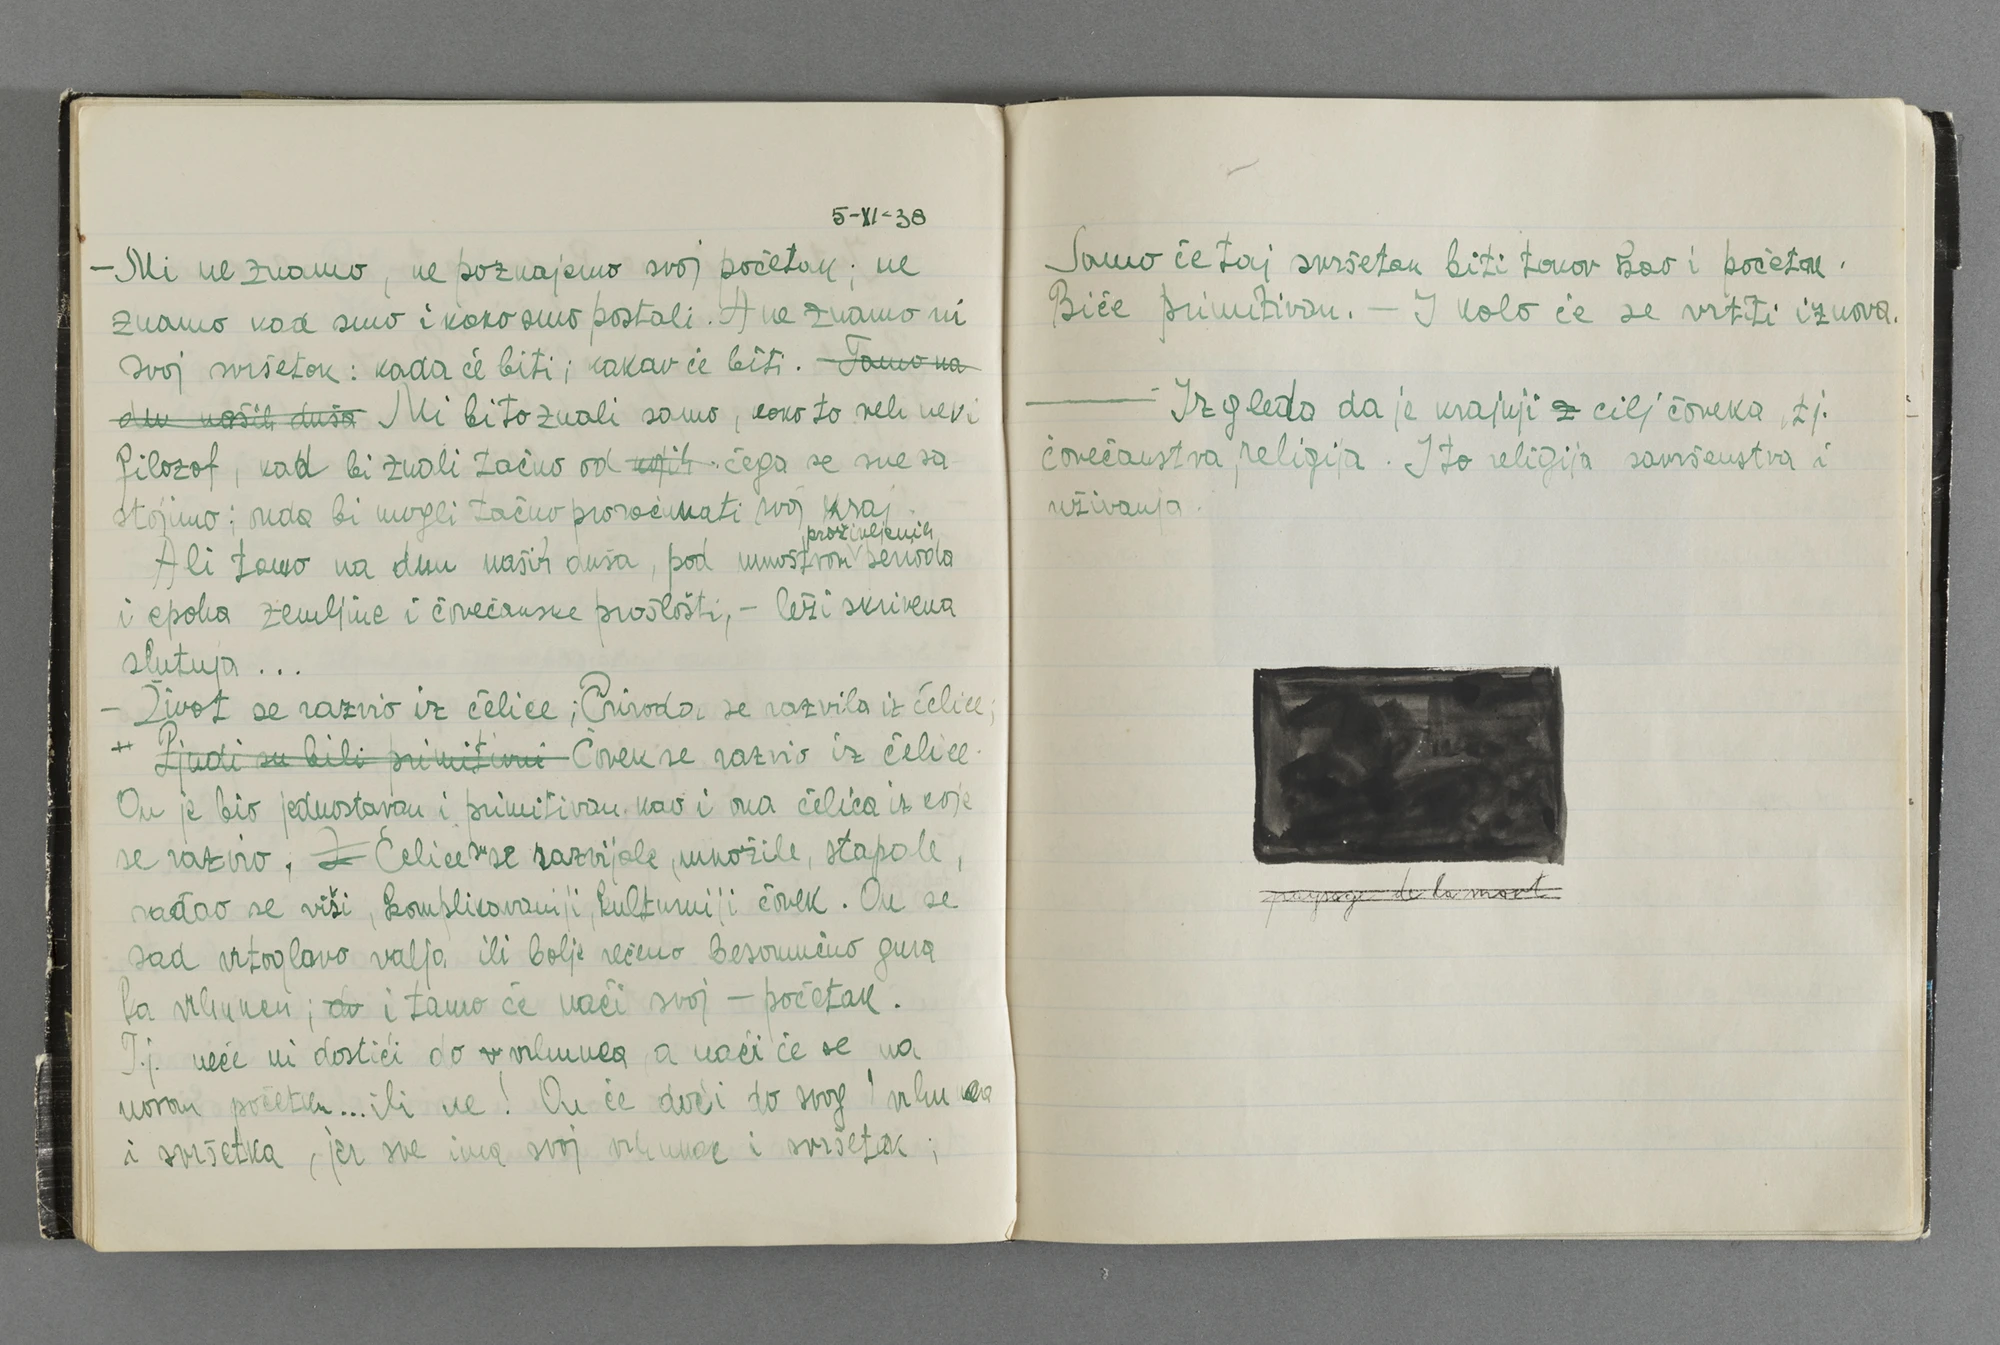 5-XI-38
- Mi ne znamo, ne poznajemo svoj početak; ne
znamo kad smo i kako smo postali. A ne znamo ni
svoj svršetak: kada će biti; kakav će biti. - Tamo na
dnu naših duša Mi bi to znali samo, kako to reče neki
filozof, kad bi znali tačno od kojih čega se sve sa
stojimo; onda bi mogli tačno proračunati svoj kraj.
proživljenih
Ali tamo na dnu naših duša, pod mnoštvom perioda
i epoha zemljine i čovečanske prošlosti, - leži skrivena
slutnja ...
- Život se razvio iz ćelice; Priroda se razvila iz ćelice;
+ Ljudi su bili primitivni Čovek se razvio iz ćelice.
On je bio jednostavan i primitivan kao i ona ćelica iz koje
se razvio. I Ćelice su se razvijale, množile, stapale,
rađao se viši, komplikovaniji, kulturniji čovek. On se
sad vrtoglavo valja ili bolje rečeno besomučno gura
ka vrhuncu; do i tamo će naći svoj - početak.
T.j. neće ni dostići do v vrhunca, a naći će se na
novom početku... ili ne! On će doći do svog vrhunca
i svršetka, jer sve ima svoj vrhunac i svršetak;
Samo će taj svršetak biti takav kao i početak.
Biće primitivan. - I kolo će se vrtiti iznova.
- Izgleda da je krajnji z cilj čoveka, tj.
čovečanstva, religija. I to religija savršenstva i
uživanja.
paysage de la mort